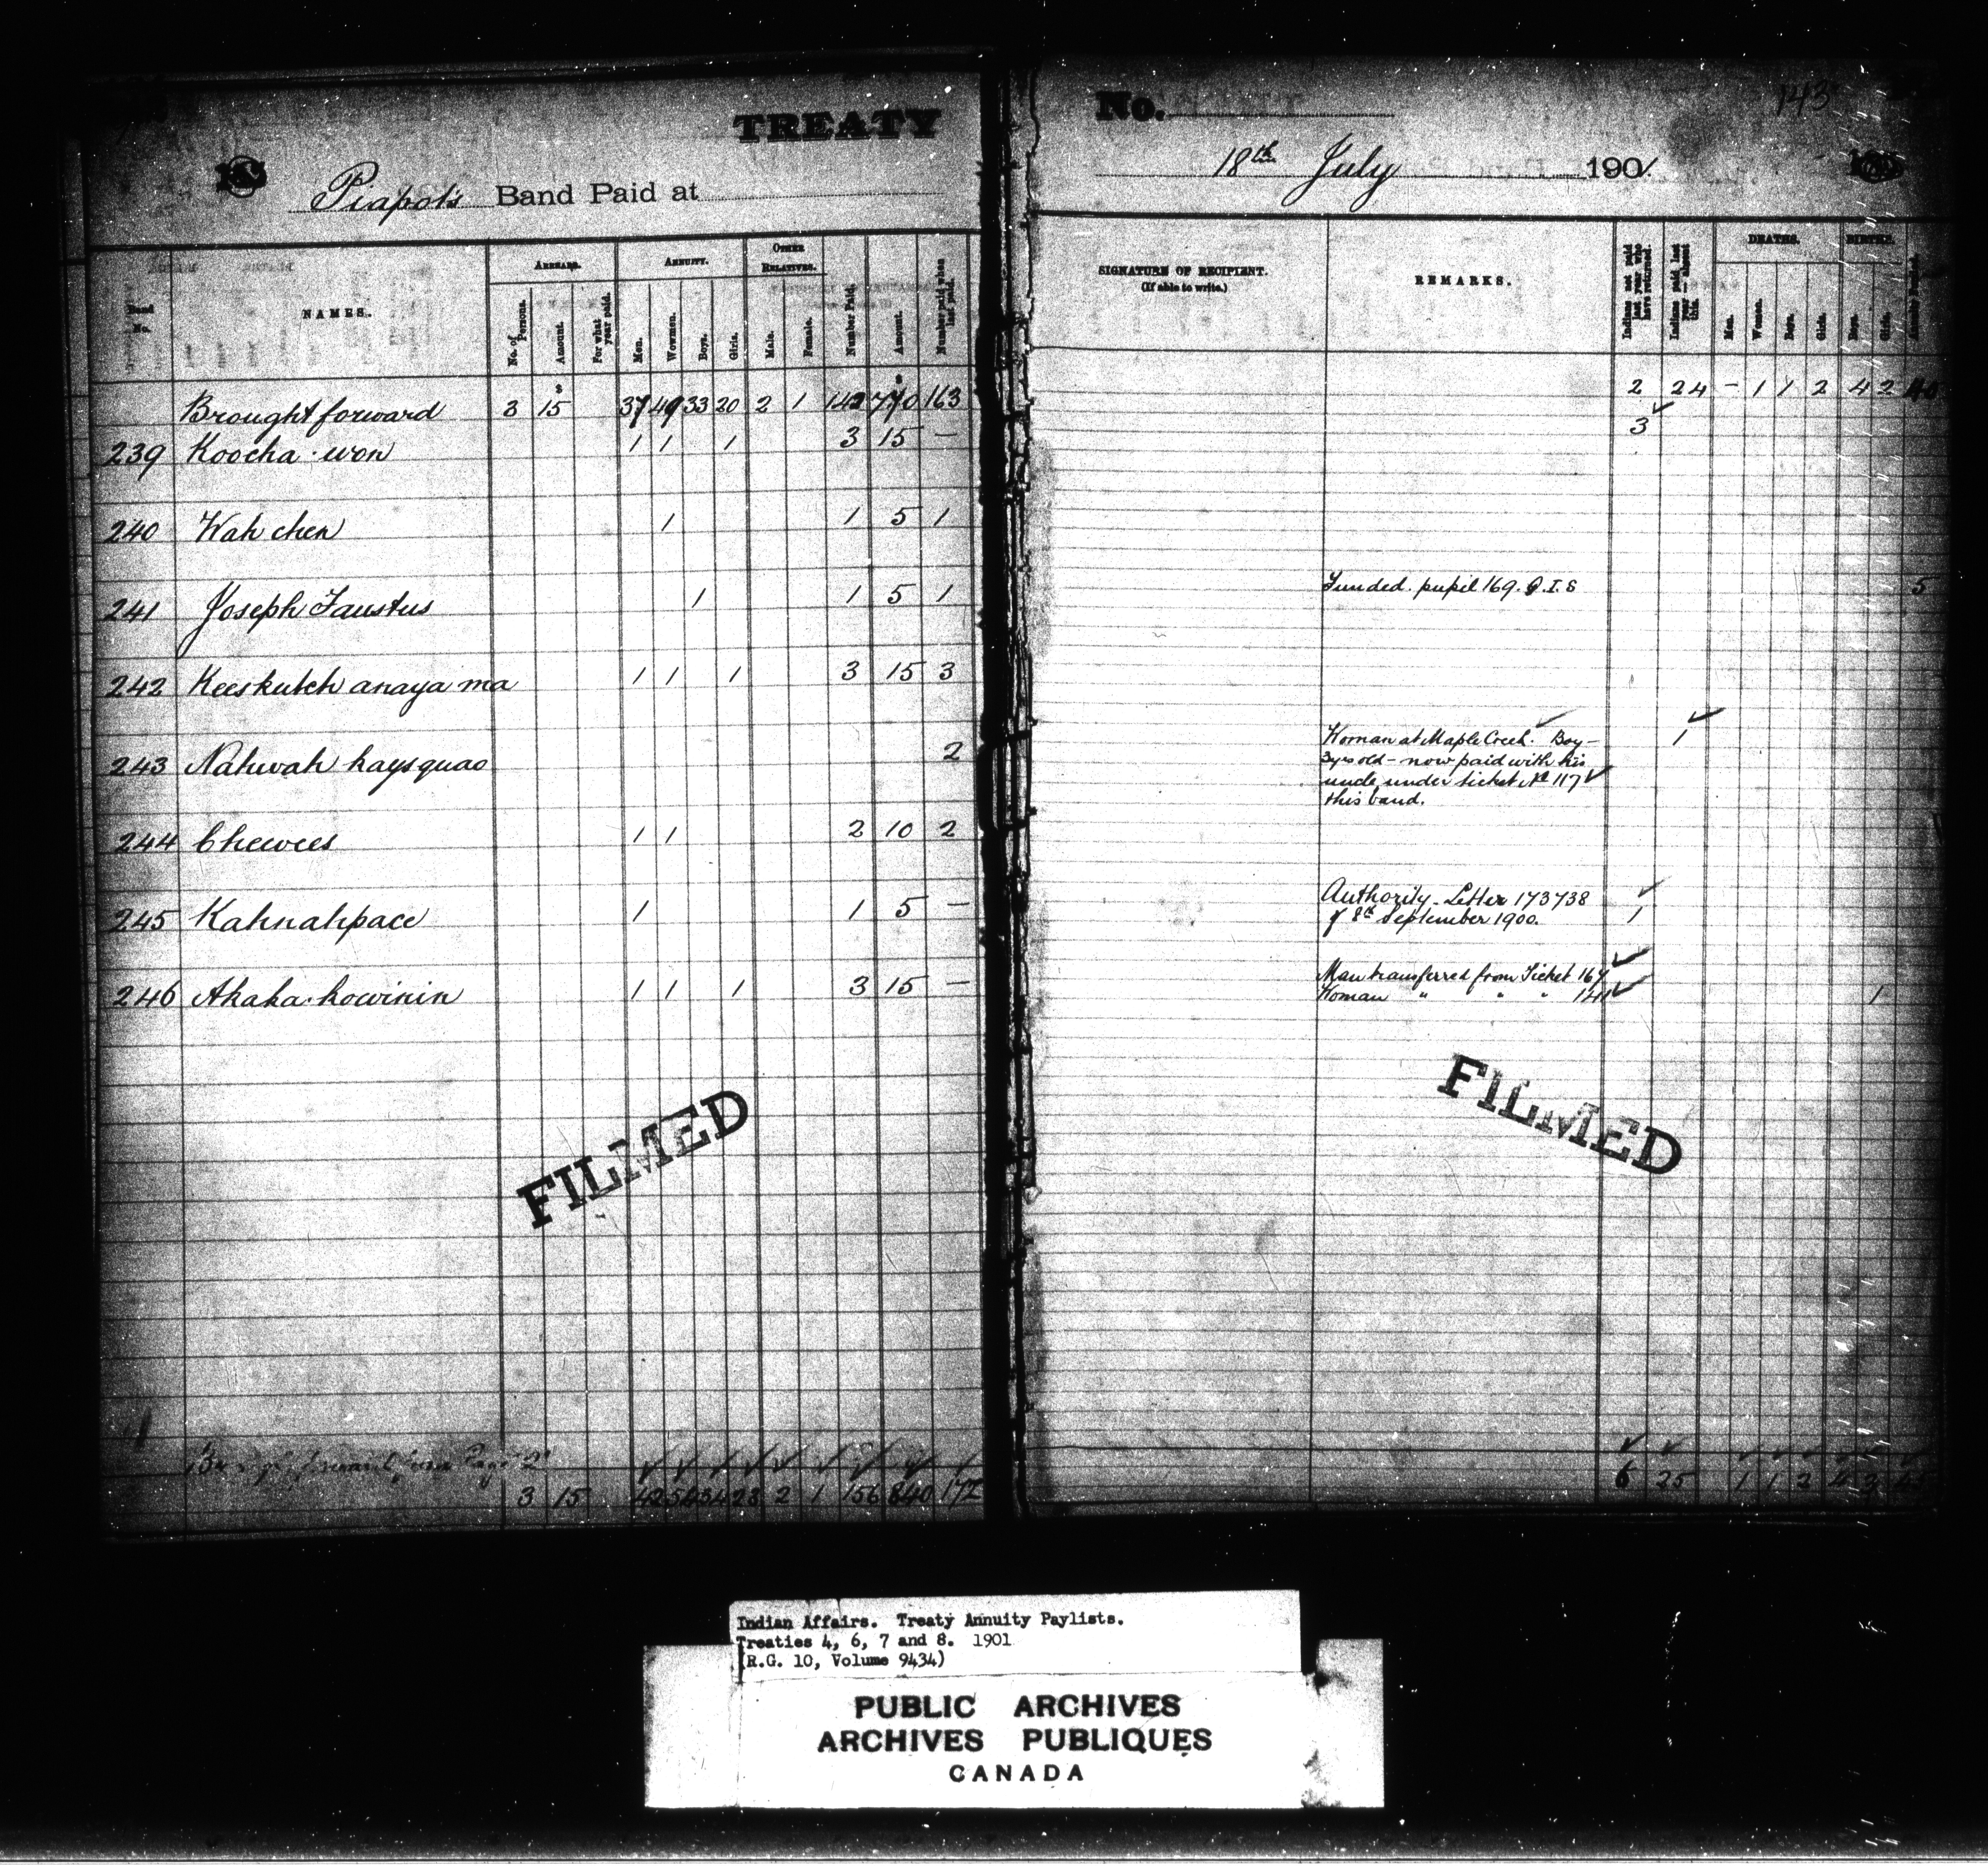 TREATY
Piapot's Band Paid at
Band No.
NAMES.
ARREARS.
ANNUITY.
OTHER RELATIVES.
No. of Persons.
Amount.
For what year paid.
Men.
Wowmen.
Boys.
Girls.
Male.
Female.
Number Paid.
Amount.
Number paid when last paid.
Brought forward 3 15 37 49 33 20 2 1 142 770 163
239 Koocha-won 1 1 1 3 15 —
240 Wah chen 1 1 5 1
241 Joseph Faustus 1 1 5 1
242 Keeskutch anaya ma 1 1 1 3 15 3
243 Nahwah kaysquao 2
244 Chewees 1 1 2 10 2
245 Kahnahpace 1 1 5 —
246 Akaka-kowinin 1 1 1 3 15 —
FILMED
3 15 2 1 156 840 172
No.
143
18th July 1901
SIGNATURE OF RECIPIENT.
(If able to write.)
REMARKS.
Indians not paid last year who have returned.
Indians paid last year — absent this.
DEATHS.
BIRTHS.
Men.
Women.
Boys.
Girls.
Boys.
Girls.
2 24 — 1 1 2 4 2
3
Funded. pupil 169. Q.I.S 5
Woman at Maple Creek. Boy — 1
3 yrs old — now paid with his
uncle under ticket No 117
this band.
Authority. Letter 173738
of 8th September 1900. 1
Man transferred from Ticket 167
Woman " " " 141 1
FILMED
6 25 1 1 2 4 3 45
Indian Affairs. Treaty Annuity Paylists.
Treaties 4, 6, 7 and 8. 1901
(R.G. 10, Volume 9434)
PUBLIC ARCHIVES
ARCHIVES PUBLIQUES
CANADA